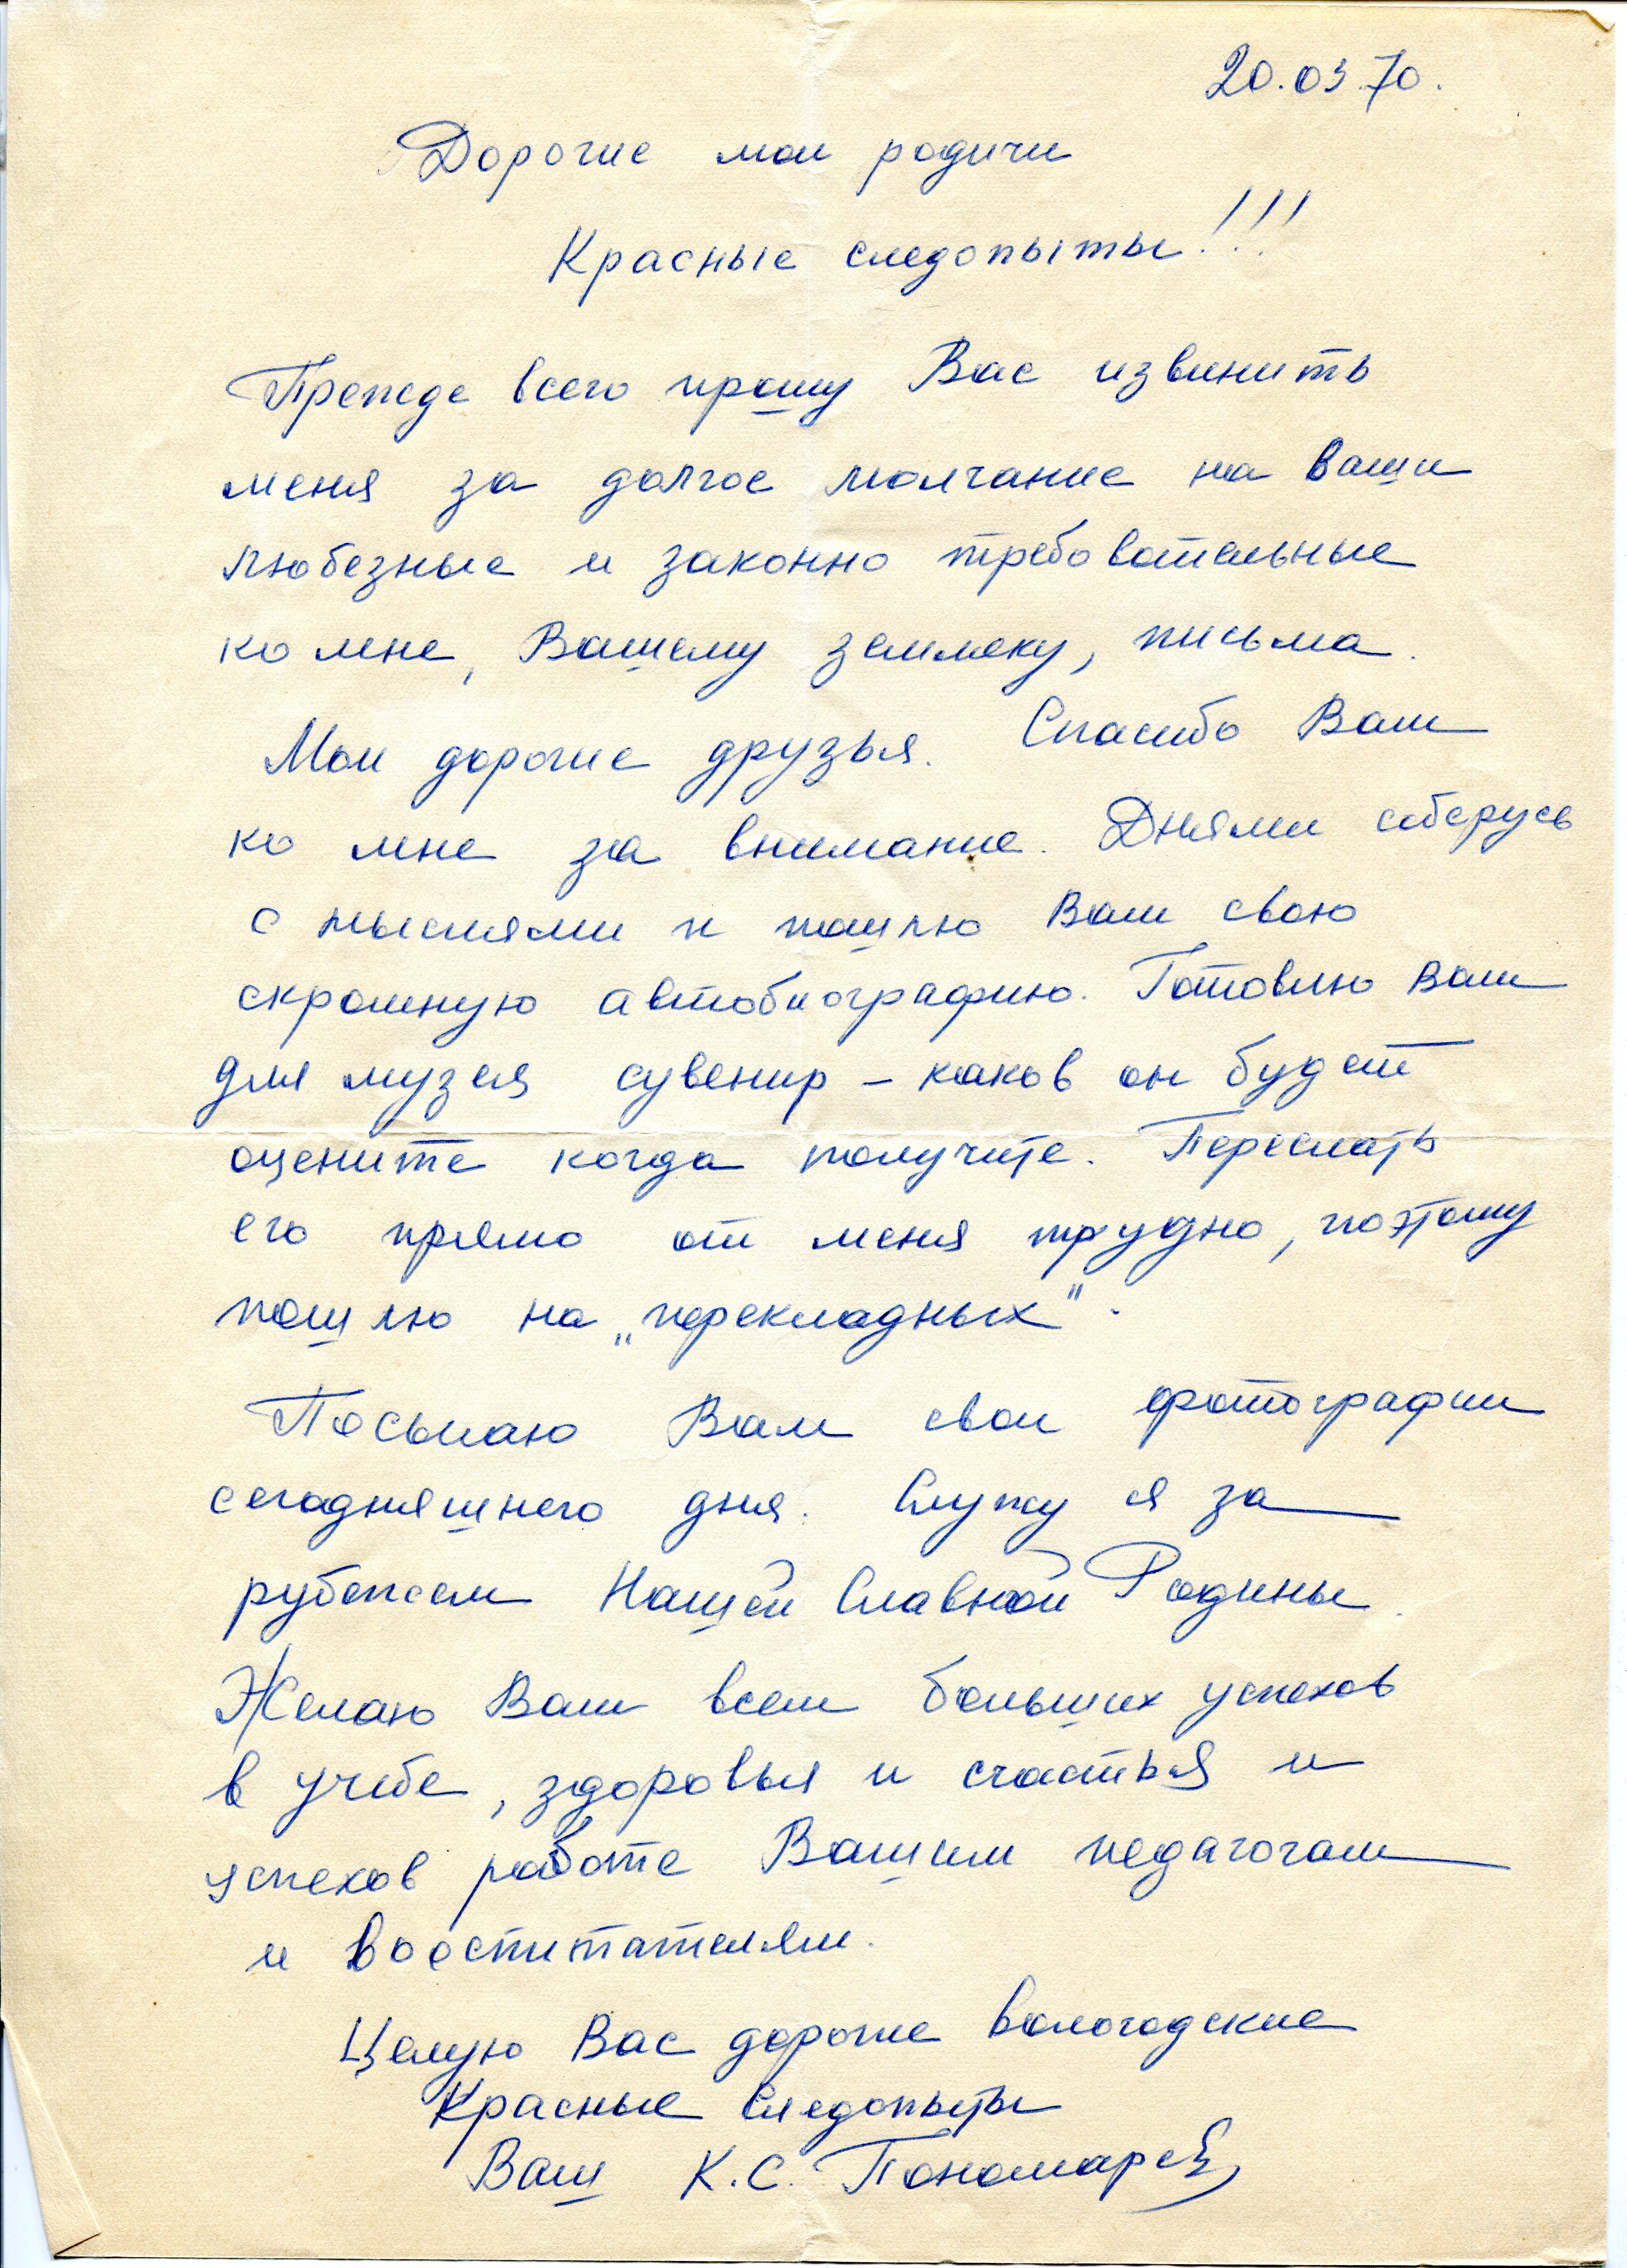 20.03.70.
Дорогие мои родичи
Красные следопыты!!!
Прежде всего прошу Вас извинить
меня за долгое молчание на ваши
любезные и законно требовательные
ко мне, Вашему земляку, письма.
Мои дорогие друзья. Спасибо Вам
ко мне за внимание. Днями соберусь
с мыслями и пошлю Вам свою
скромную автобиографию. Готовлю Вам
для музея сувенир – каков он будет
оцените когда получите. Переслать
его прямо от меня трудно, поэтому
пошлю на „перекладных".
Посылаю Вам свои фотографии
сегодняшнего дня. Служу я за
рубежем Нашей Славной Родины.
Желаю Вам всем больших успехов
в учебе, здоровья и счастья и
успехов работе Вашим педагогам
и воспитателям.
Целую Вас дорогие вологодские
Красные Следопыты
Ваш К.С. Пономарев